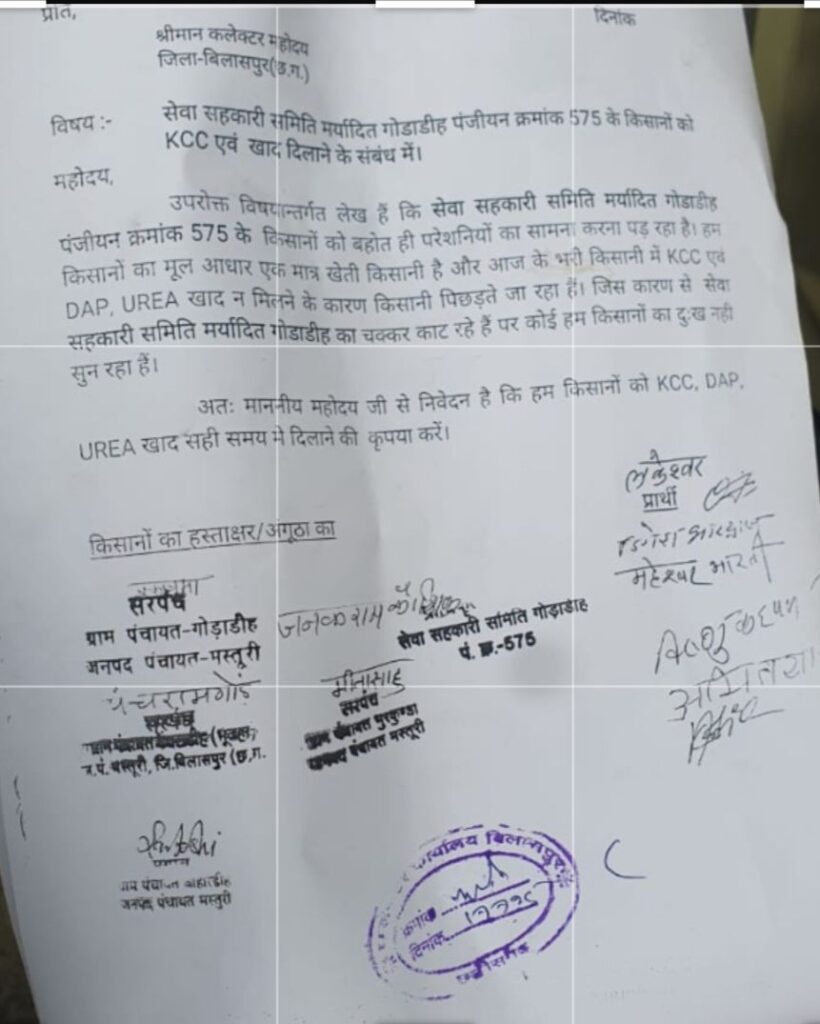 प्रति,
दिनांक
श्रीमान कलेक्टर महोदय
जिला-बिलासपुर(छ.ग.)
विषय :- सेवा सहकारी समिति मर्यादित गोडाडीह पंजीयन क्रमांक 575 के किसानों को
KCC एवं खाद दिलाने के संबंध में।
महोदय,
उपरोक्त विषयान्तर्गत लेख हैं कि सेवा सहकारी समिति मर्यादित गोडाडीह
पंजीयन क्रमांक 575 के किसानों को बहोत ही परेशनियों का सामना करना पड़ रहा है। हम
किसानों का मूल आधार एक मात्र खेती किसानी है और आज के भरी किसानी में KCC एवं
DAP, UREA खाद न मिलने के कारण किसानी पिछड़ते जा रहा हैं। जिस कारण से सेवा
सहकारी समिति मर्यादित गोडाडीह का चक्कर काट रहे हैं पर कोई हम किसानों का दुःख नही
सुन रहा हैं।
अतः माननीय महोदय जी से निवेदन है कि हम किसानों को KCC, DAP,
UREA खाद सही समय मे दिलाने की कृपया करें।
प्रार्थी
महेश्वर भारती
किसानों का हस्ताक्षर/अंगूठा का
सरपंच
ग्राम पंचायत-गोड़ाडीह
जनपद पंचायत-मस्तूरी
जनकराम कौशिक
सेवा सहकारी समिति गोड़ाडीह
पं. क्र.-575
पंचराम गोंड
सरपंच
न.पं. मस्तूरी, जि.बिलासपुर (छ.ग.
सरपंच
पंचायत मस्तूरी
जनपद पंचायत मस्तूरी
कार्यालय बिलासपुर
क्रमांक
दिनांक
छत्तीसगढ़